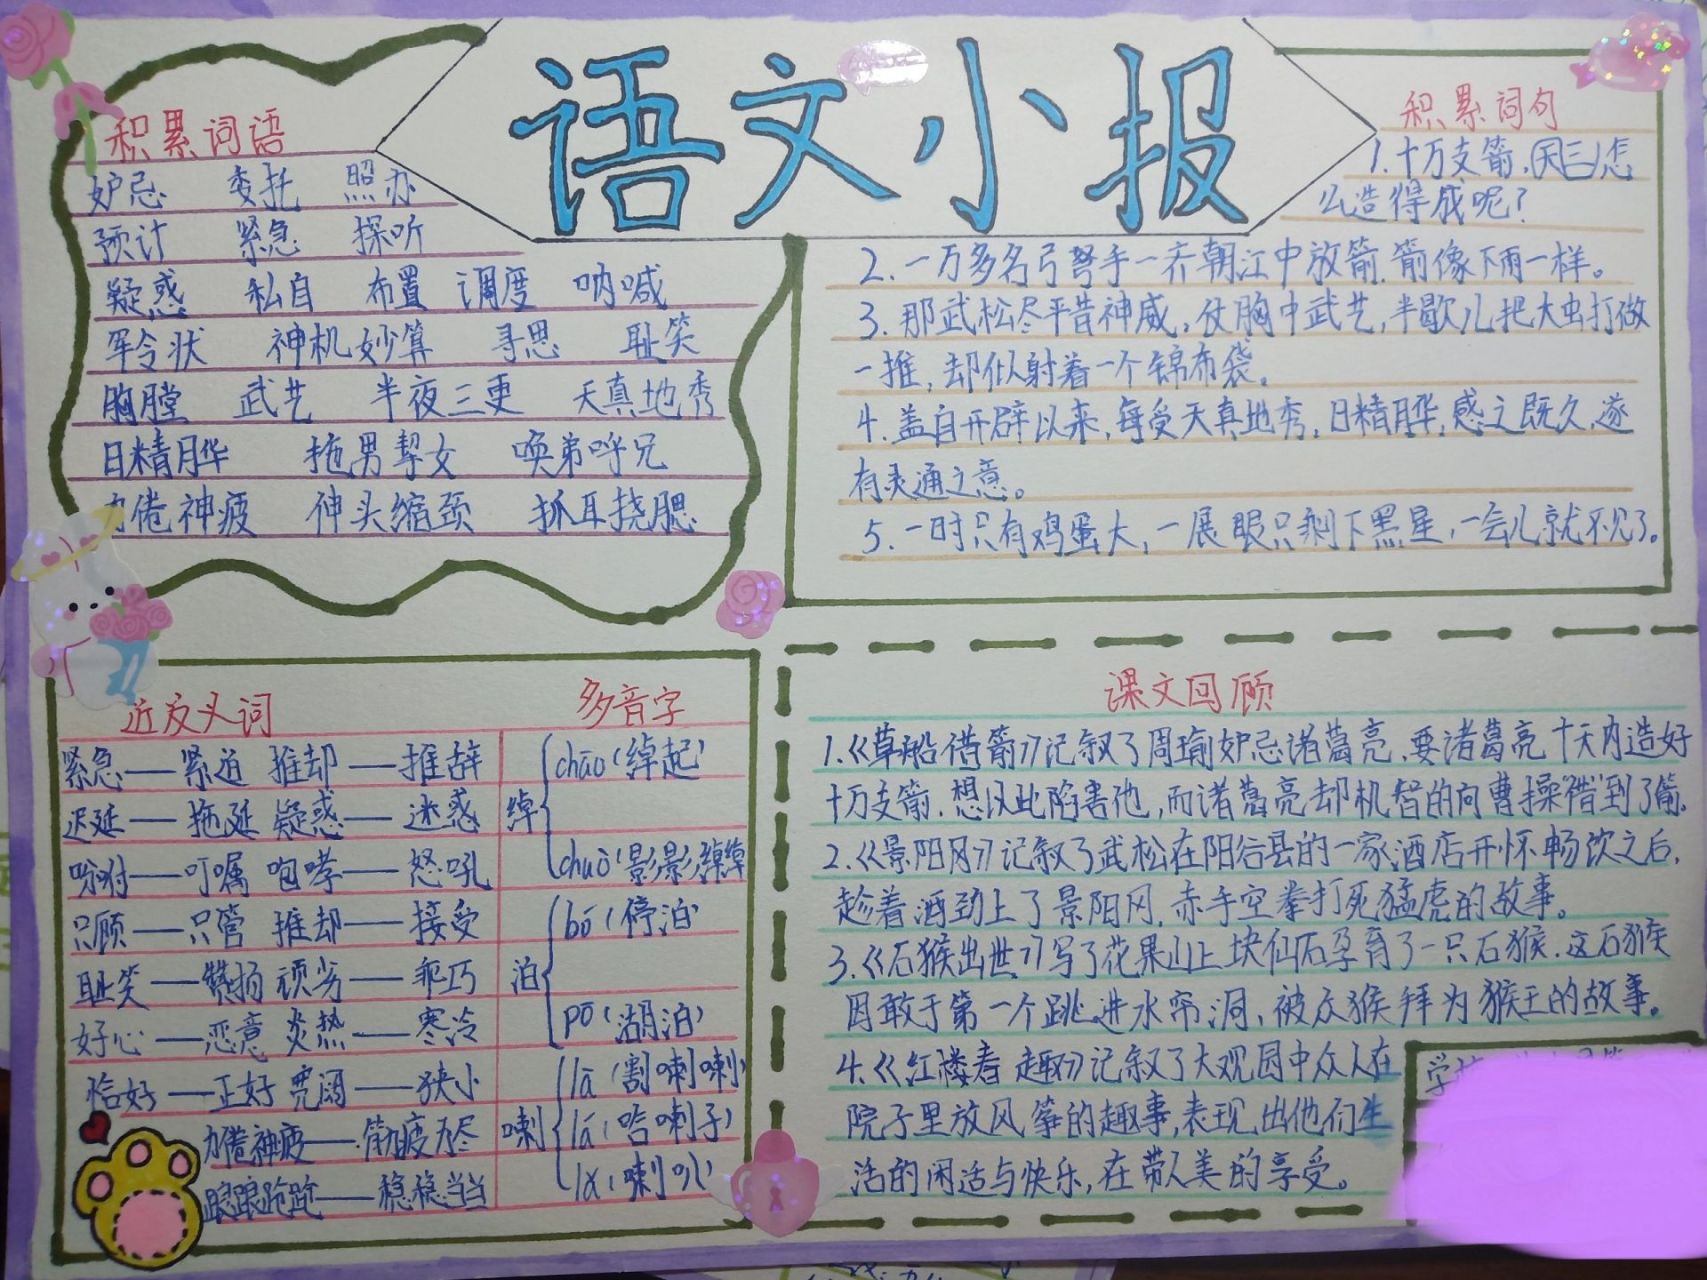 语文小报
积累词语
妒忌 委托 照办
预计 紧急 探听
疑惑 私自 布置 调度 呐喊
军令状 神机妙算 寻思 耻笑
胸膛 武艺 半夜三更 天真地秀
日精月华 拖男挈女 唤弟呼兄
力倦神疲 伸头缩颈 抓耳挠腮
积累词句
1.十万支箭,三天怎
么造得成呢?
2.一万多名弓弩手一齐朝江中放箭.箭像下雨一样。
3.那武松尽平昔神威,仗胸中武艺,半歇儿把大虫打做
一推,却似射着一个锦布袋。
4.盖自开辟以来,每受天真地秀,日精月华,感之既久,遂
有灵通之意。
5.一时只有鸡蛋大,一展眼只剩下黑星,一会儿就不见了。
近反义词
紧急——紧迫 推却——推辞
迟延——拖延 疑惑——迷惑
吩咐——叮嘱 咆哮——怒吼
只顾——只管 推却——接受
耻笑——赞扬 顽劣——乖巧
好心——恶意 炎热——寒冷
恰好——正好 宽阔——狭小
力倦神疲——筋疲力尽
踉踉跄跄——稳稳当当
多音字
绰
chāo(绰起)
chuò(影影绰绰)
泊
bó(停泊)
pō(湖泊)
喇
lā(割喇喇)
lá(哈喇子)
lǎ(喇叭)
课文回顾
1.《草船借箭》记叙了周瑜妒忌诸葛亮,要诸葛亮十天内造好
十万支箭.想以此陷害他,而诸葛亮却机智的向曹操"借"到了箭.
2.《景阳冈》记叙了武松在阳谷县的一家酒店开怀畅饮之后,
趁着酒劲上了景阳冈,赤手空拳打死猛虎的故事。
3.《石猴出世》写了花果山上块仙石孕育了一只石猴.这石猴
因敢于第一个跳进水帘洞,被众猴拜为猴王的故事。
4.《红楼春趣》记叙了大观园中众人在
院子里放风筝的趣事,表现出他们生
活的闲适与快乐,在带人美的享受。